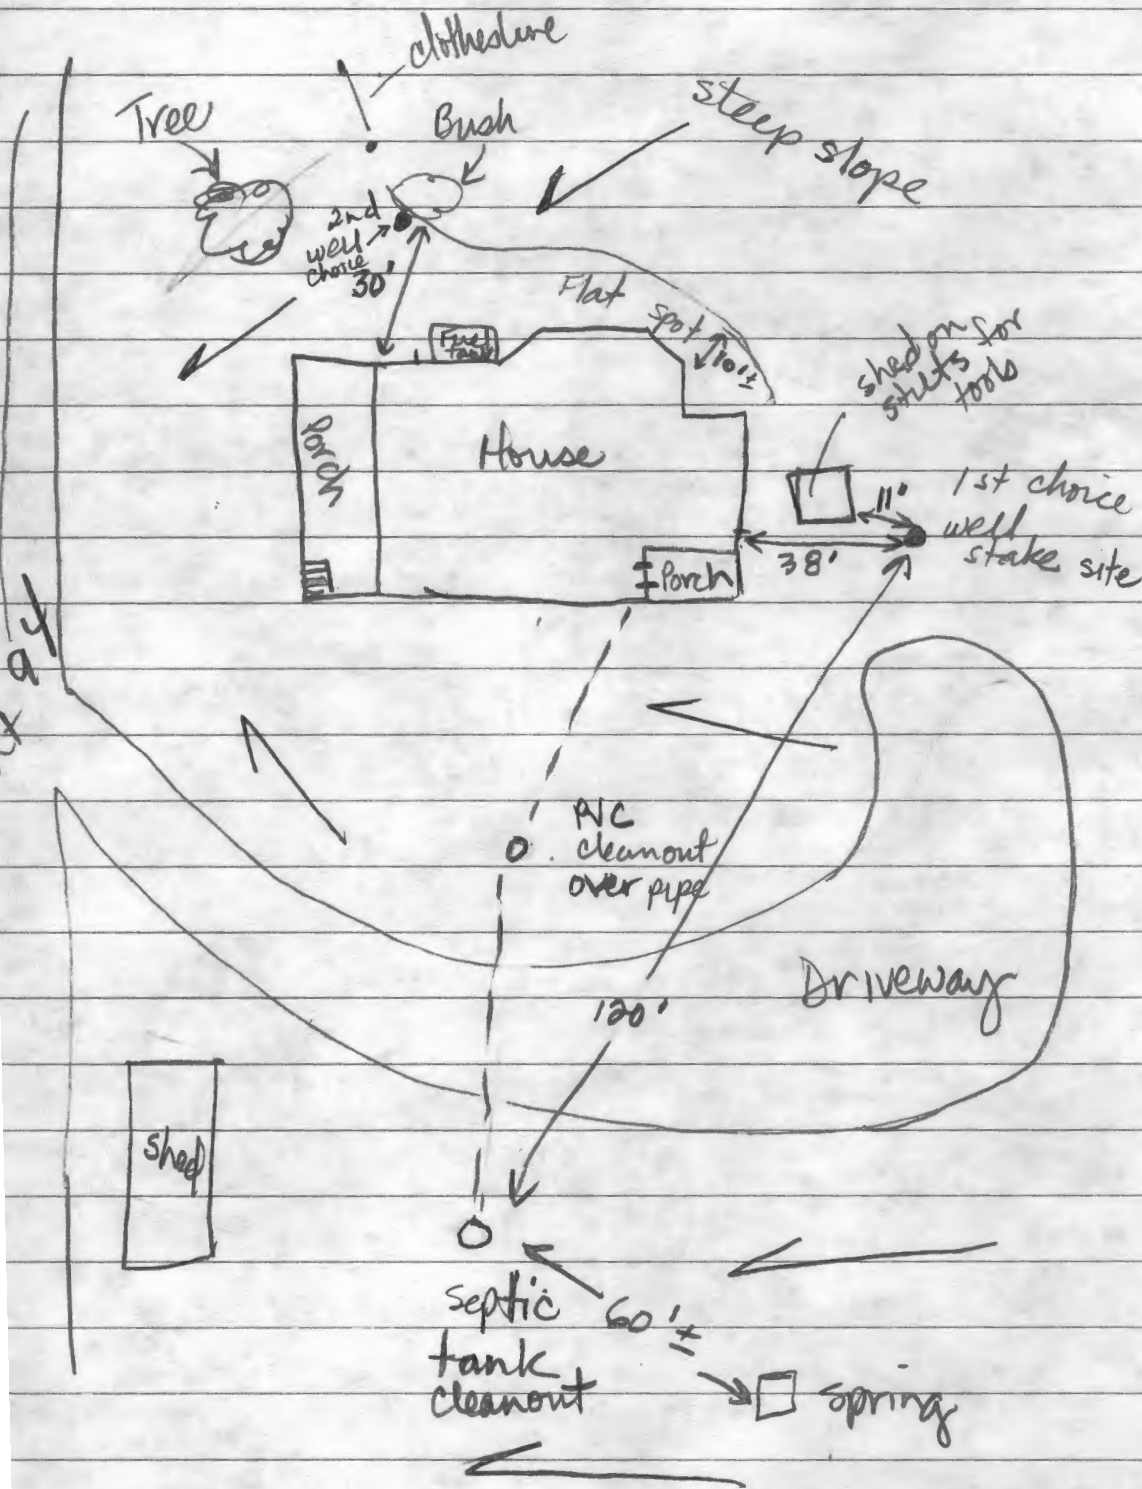 clothesline
Tree
Bush
steep slope
2nd
well
choice
30'
Flat
spot
10'±
Fuel
tank
shed on
stilts for
tools
Porch
House
11'
1st choice
well
stake site
38'
Porch
PVC
cleanout
over pipe
Driveway
120'
Shed
Septic
tank
cleanout
60'±
Spring